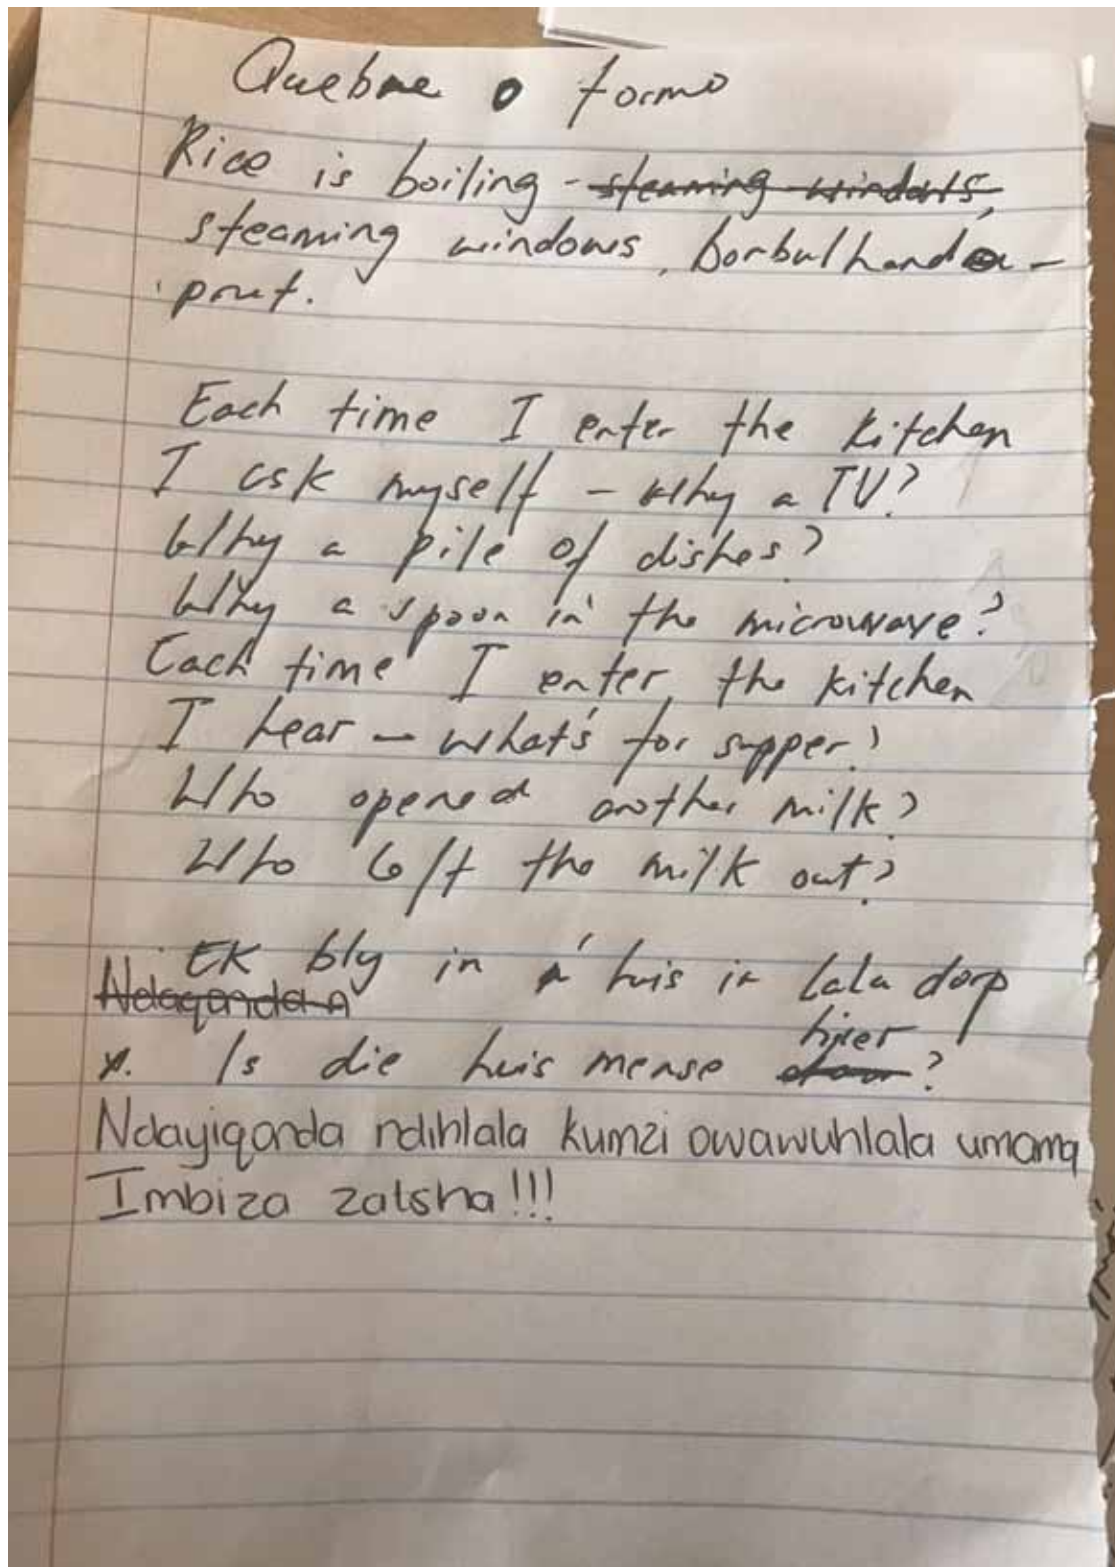 Quebre o formo
Rice is boiling - steaming windows,
steaming windows, borbulhando -
prut.
Each time I enter the kitchen
I ask myself - Why a TV?
Why a pile of dishes?
Why a spoon in the microwave?
Each time I enter the kitchen
I hear - what's for supper?
Who opened another milk?
Who left the milk out?
EK bly in 'n huis in lala dorp
Ndaqonda n
Is die huis mense hier?
Ndayiqonda ndihlala kumzi owawuhlala umama
Imbiza zatsha!!!